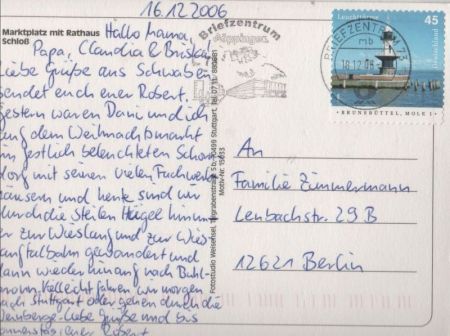 16.12.2006
Marktplatz mit Rathaus
Schloß
Hallo Mama,
Papa, Claudia &
Liebe Grüße aus Schwaben
sendet euch euer Robert.
Gestern waren Dani und ich
auf dem Weihnachtsmarkt
im festlich beleuchteten Schorn-
dorf mit seinen vielen Fachwerk-
häusern und heute sind wir
durch die steilen Hügel hinun-
ter zur Wieslauf und zur Wies-
lauftalbahn gewandert und
dann wieder hinauf nach Buhl-
bronn. Vielleicht fahren wir morgen
nach Stuttgart oder gehen durch die
Weinberge. Liebe Grüße und bis
euer Robert
Fotostudio 70499 Stuttgart, Tel. 0711/
Motiv-Nr.
Briefzentrum
Göppingen
BRIEFZENTRUM 73
mb
18.12.06
Leuchttürme
45
Deutschland
BRUNSBÜTTEL, MOLE 1
An
Familie Zimmermann
Lenbachstr. 29 B
12621 Berlin